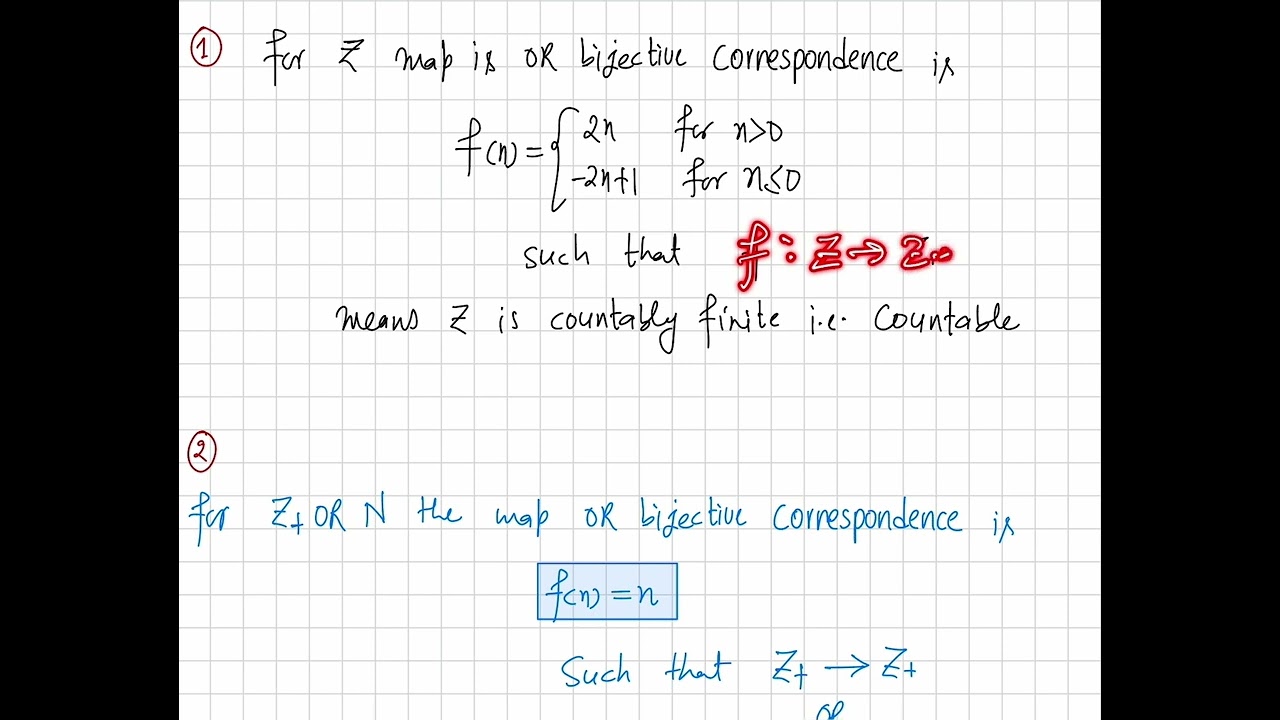 ① for Z map is OR bijective correspondence is
f(n) = { 2n for n>0
-2n+1 for n≤0
such that f : Z → Z₊
means Z is countably finite i.e. Countable
②
for Z₊ OR N the map OR bijective correspondence is
f(n) = n
Such that Z₊ → Z₊
or